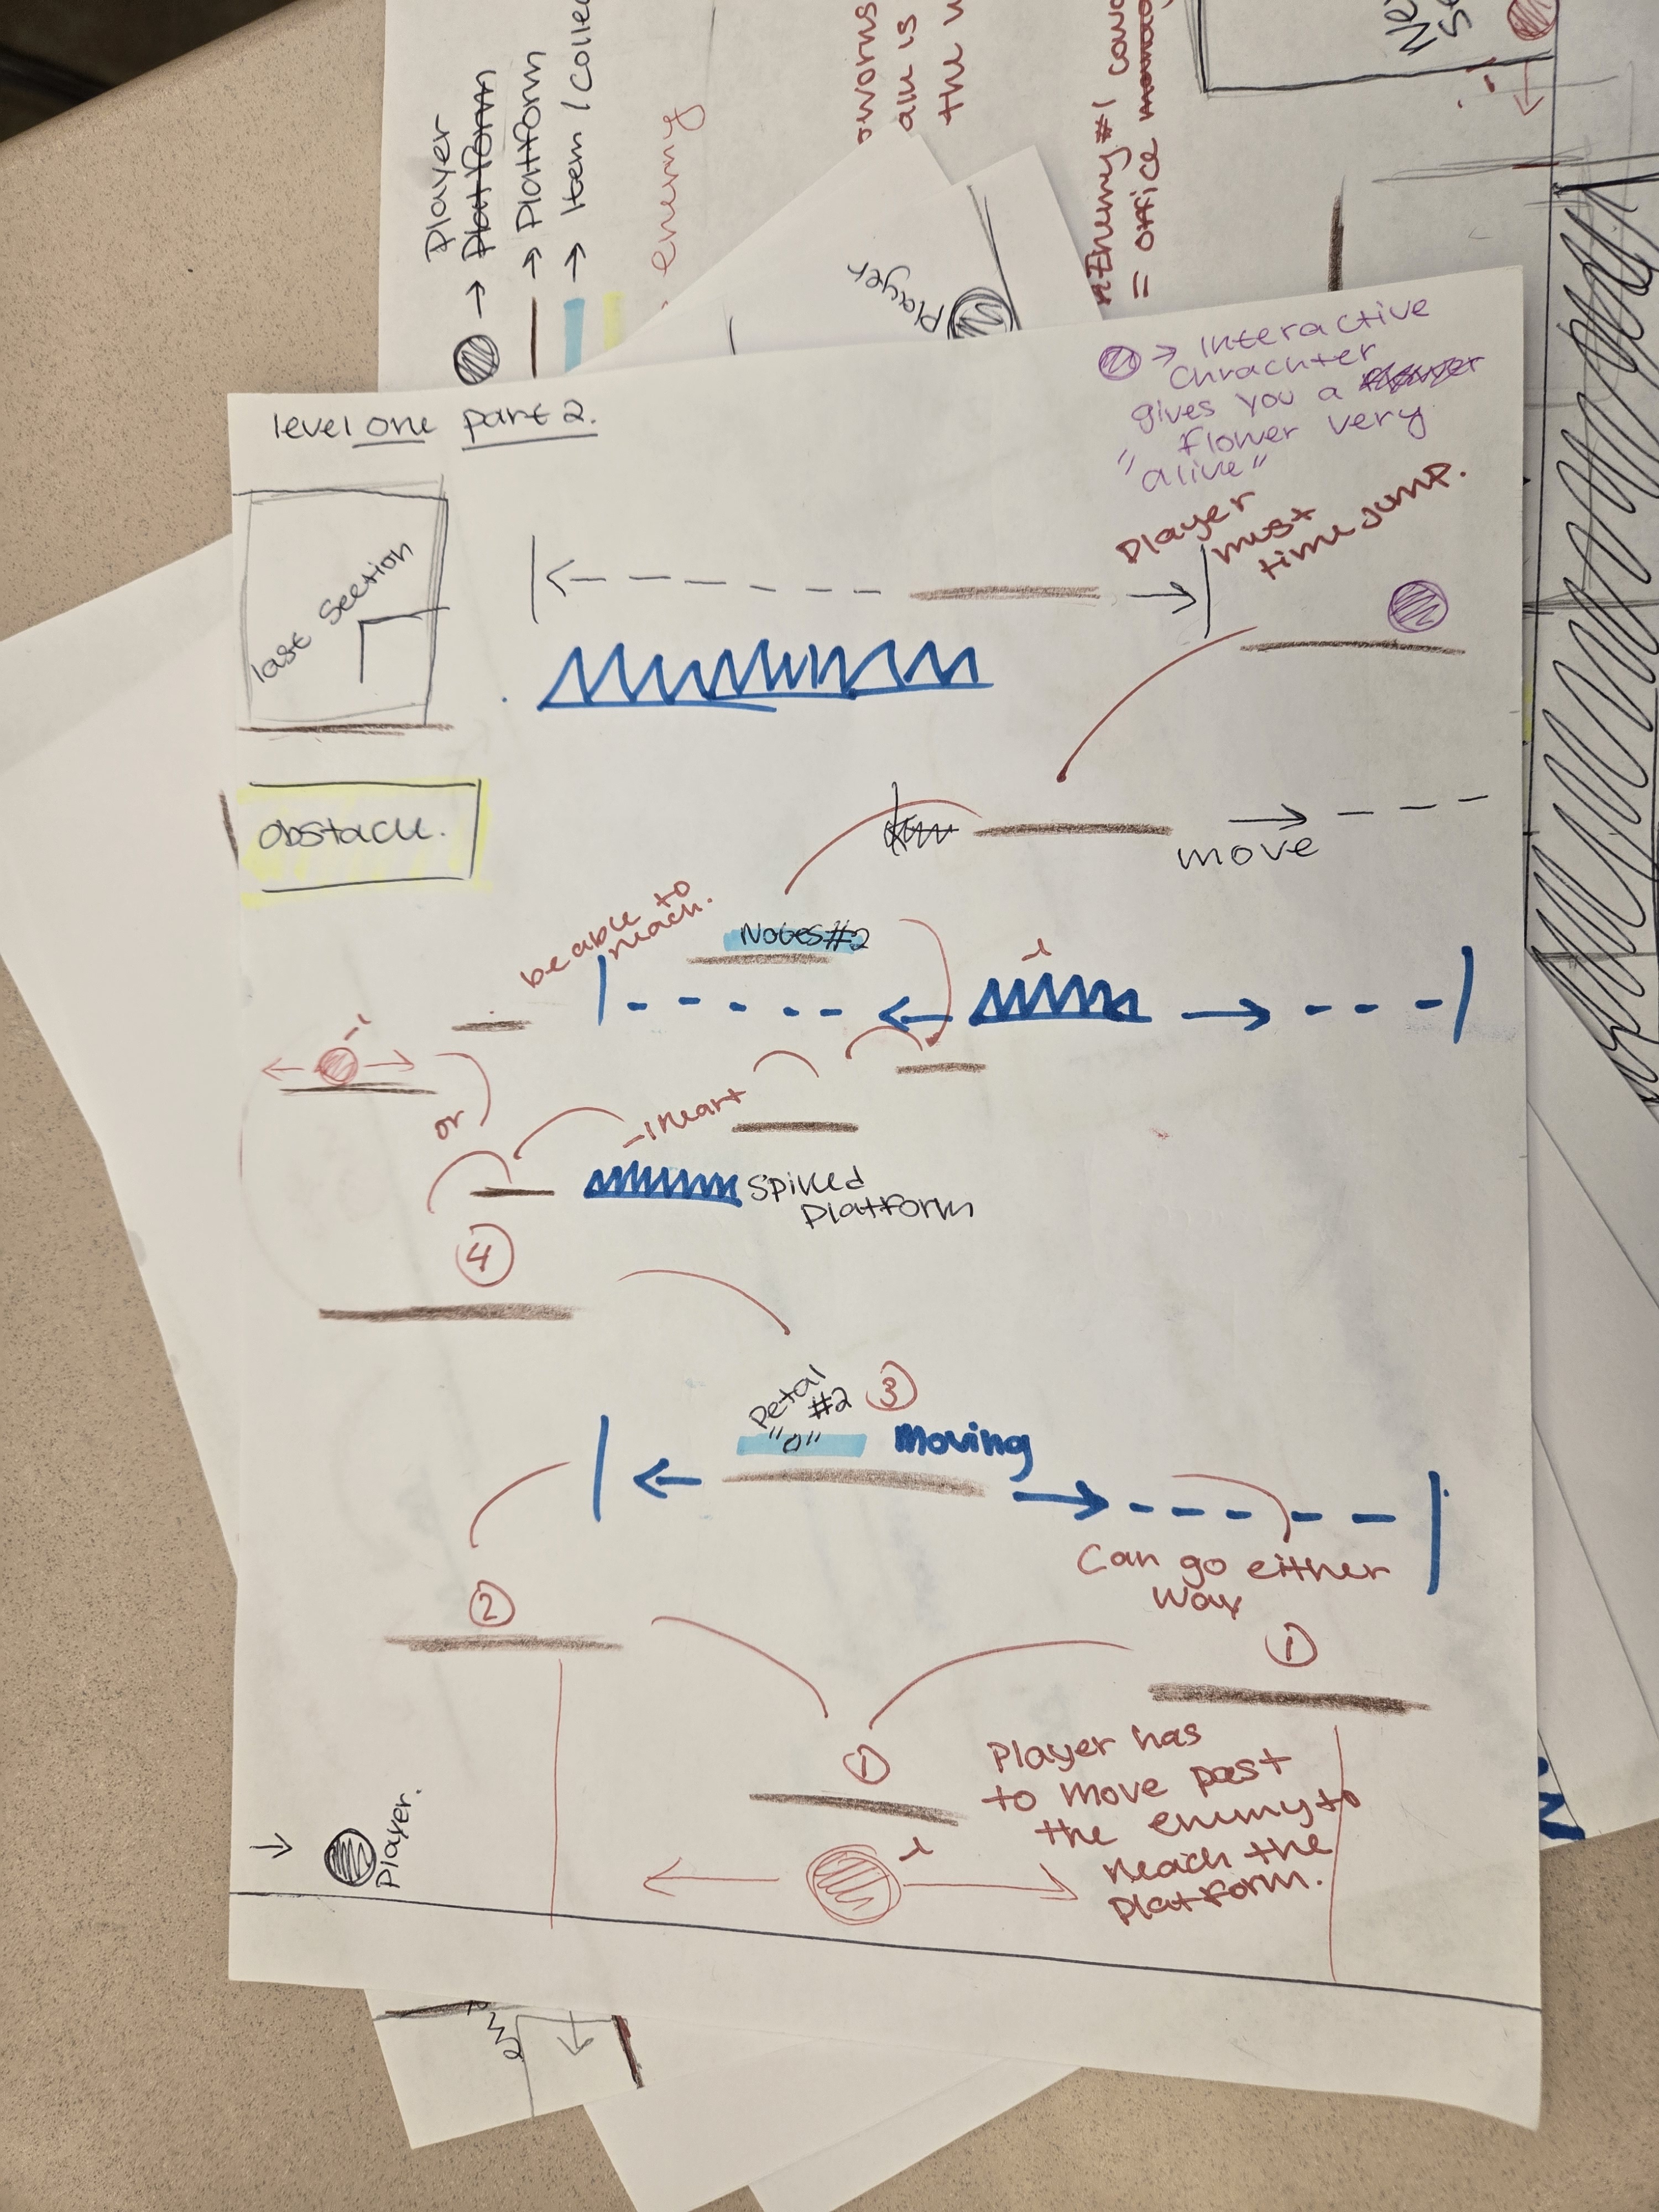 Player
Platform
→ Platform
→ Item / Colle
enemy
all is
the
Enemy #1
= office
Player
level one part 2.
→ Interactive
Chrachter
gives you a
flower very
"alive"
Player
must
time jump.
last section
obstacle.
move
be able to
reach.
Notes #2
-1
-1
or
-1 heart
Spiked
Platform
4
Petal
#2
"0"
3
Moving
Can go either
way
2
1
1
Player has
to move past
the enemy to
reach the
platform.
Player.
-1